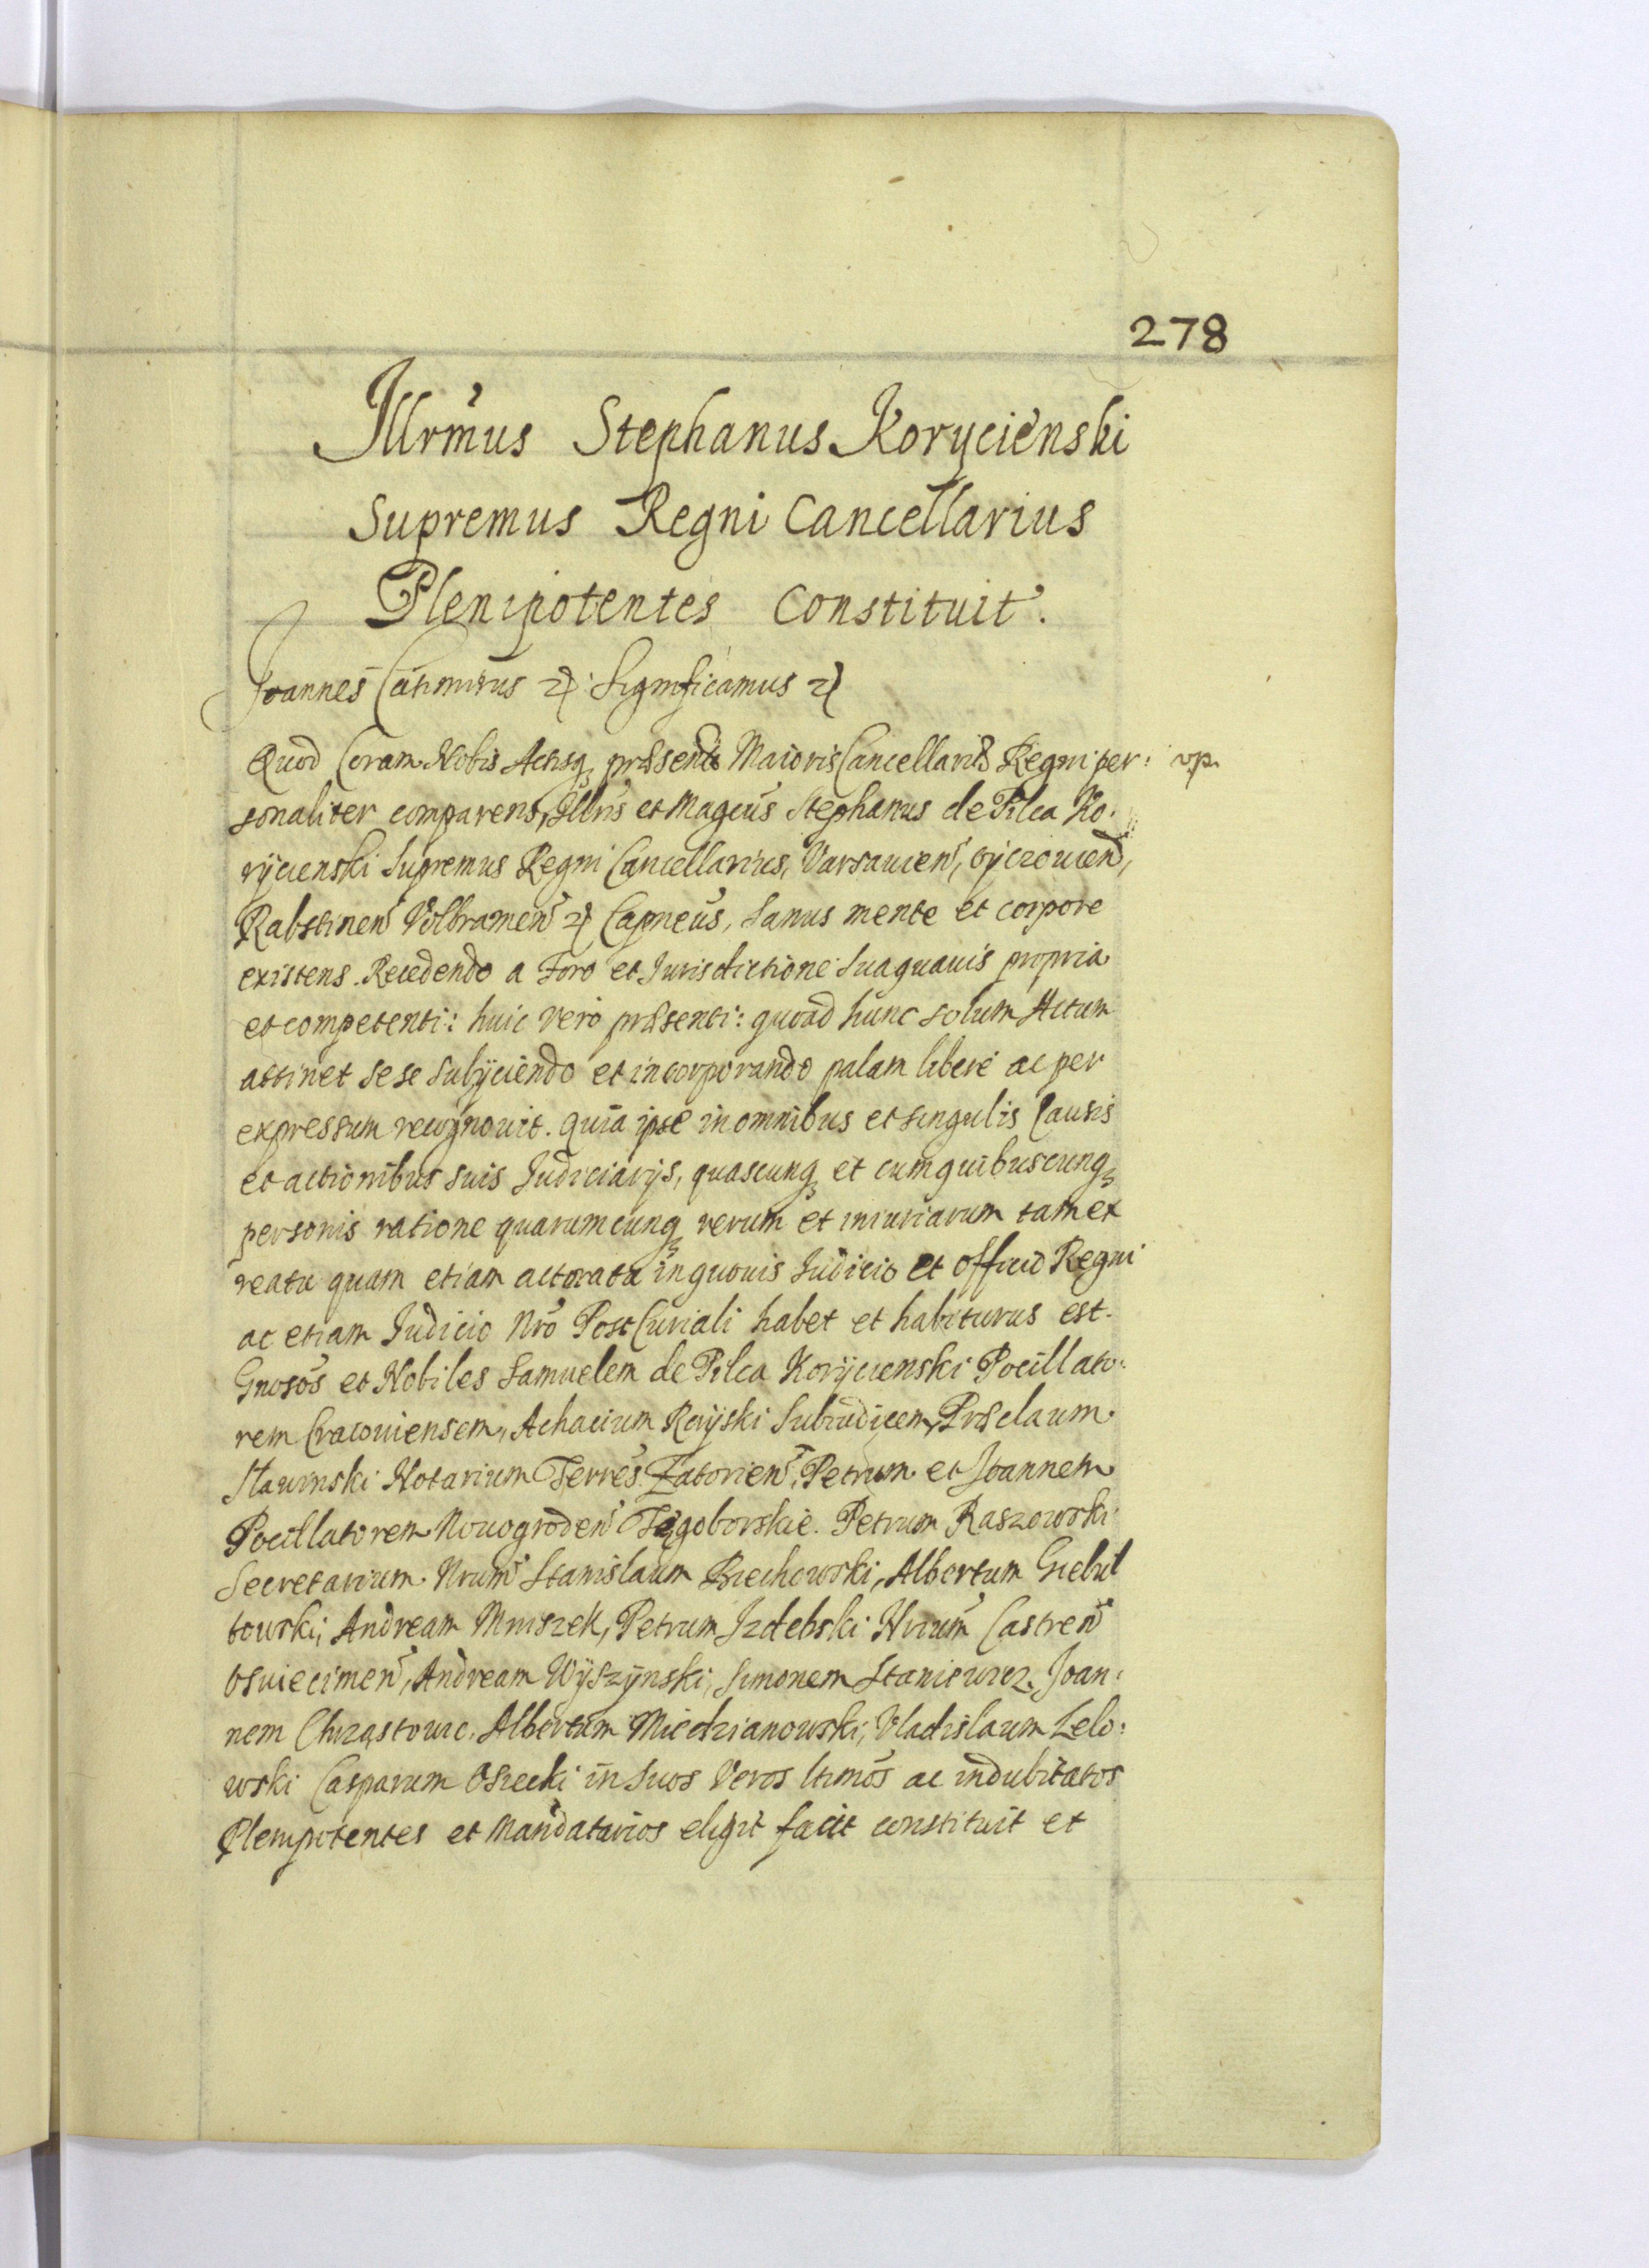 278
Illrmus Stephanus Korycienski
Supremus Regni Cancellarius
Plenipotentes Constituit.
Joannes Casimirus Significamus
Quod Coram Nobis Actisq præsentis Maioris Cancellariæ Regni per: vp.
sonaliter comparens, Illris et Magcus Stephanus de Pilca Ko:
rycienski Supremus Regni Cancellarius, Varsauien, Oyczouien,
Rabstinen Volbramen Capneus, Sanus mente et corpore
existens. Recedendo a Foro et Jurisdictione Sua quauis propria
et competenti: huic vero præsenti: quoad hunc solum Actum
attinet sese Subÿciendo et incorporando palam libere ac per
expressum recognouit. Quia ipse in omnibus et singulis Causis
et actionibus suis Judiciarÿs, quascunq et cum quibuscunq
personis ratione quarumcunq rerum et iniuriarum tam ex
reatu quam etiam actoratu in quouis Judicio et Officio Regni
ac etiam Judicio Nro PostCuriali habet et habiturus est.
Gnosos et Nobiles Samuelem de Pilca Korÿcienski Pocillato:
rem Cracouiensem, Achacium Rayski Subiudicem, Præclaum
Slawinski Notarium Terres Zatorien, Petrum et Joannem
Pocillatorem Nouogroden Tęgoborskie. Petrum Raszowski
Secretarium Nrum Stanislaum Biechowski, Albertum Giebul
towski, Andream Mniszek, Petrum Izdebski Nrium Castren
Osuiecimen, Andream Wÿszÿnski, Simonem Staniewicz, Joan:
nem Chrząstowic. Albertum Miedzianowski, Vladislaum Lelo:
wski Casparum Osiecki in Suos Veros ltimos ac indubitatos
Plenipotentes et Mandatarios eligit facit constituit et